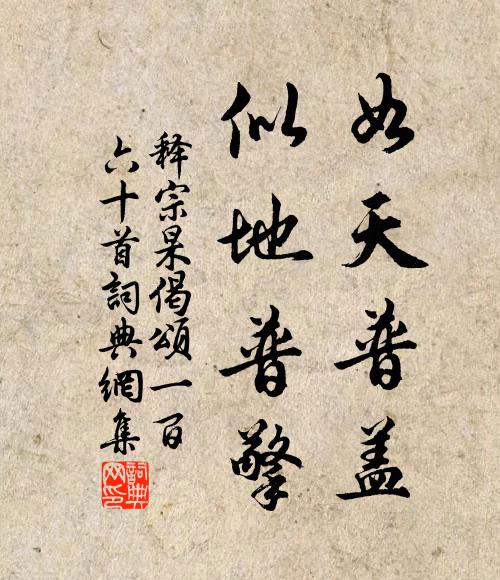 如天普盖
似地普擎
释宗杲偈頌一百
六十首詞典網集
詞典网印